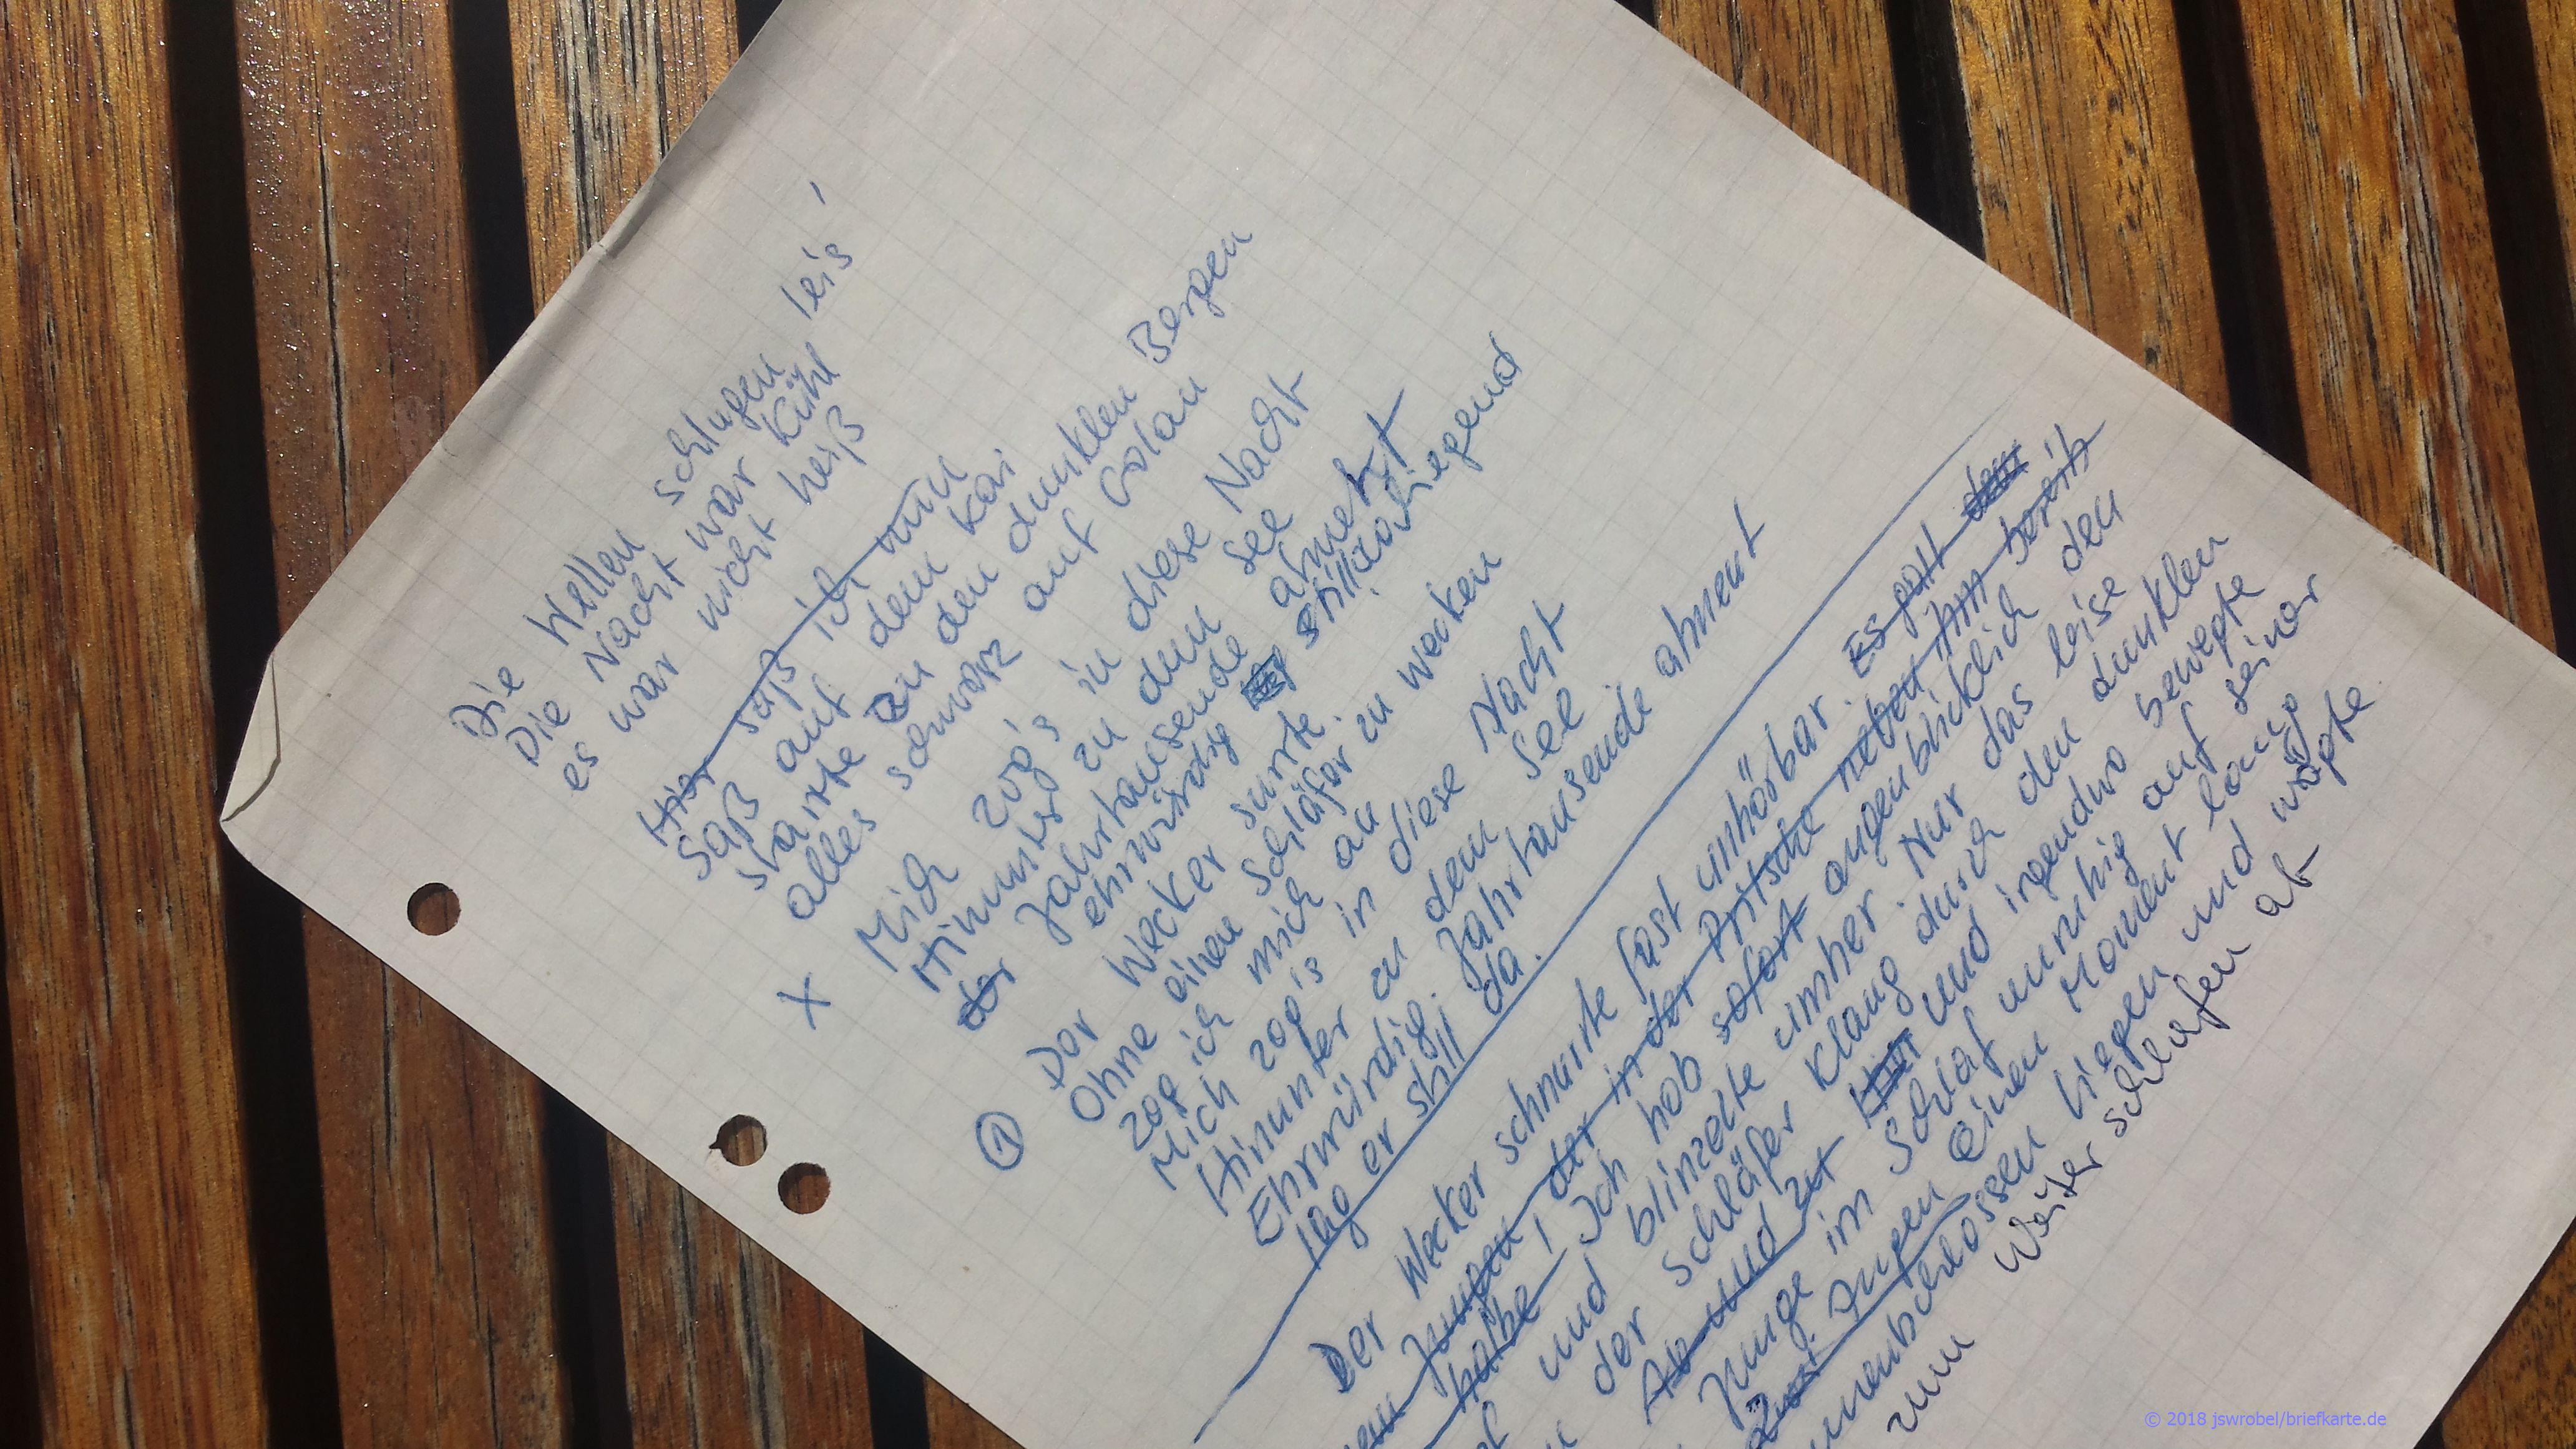 Die Wellen schlugen leis'
Die Nacht war kühl
es war nicht heiß
Hier saß ich nun
saß auf dem Kai
starrte zu den dunklen Bergen
alles schwarz auf Golan
X Mich zog's in diese Nacht
Hinunter zu dem See
der Jahrtausende atmet
ehrwürdig stilldaliegend
1 Der Wecker surrte.
Ohne einen Schläfer zu wecken
zog ich mich an
Mich zog's in diese Nacht
Hinunter zu dem See
Ehrwürdig. Jahrtausende atmend
lag er still da.
Der Wecker schnurrte fast unhörbar. Es galt den
Jungen, der in der Pritsche neben ihm bereits
halbe Ich hob sofort augenblicklich den
und blinzelte umher. Nur das leise
der Schläfer klang durch den dunklen
Ab und zu Hier und irgendwo bewegte
Junge im Schlaf unruhig auf seiner
Augen einen Moment lang
liegen und wägte
zum Weiterschlafen ab
© 2018 jswrobel/briefkarte.de